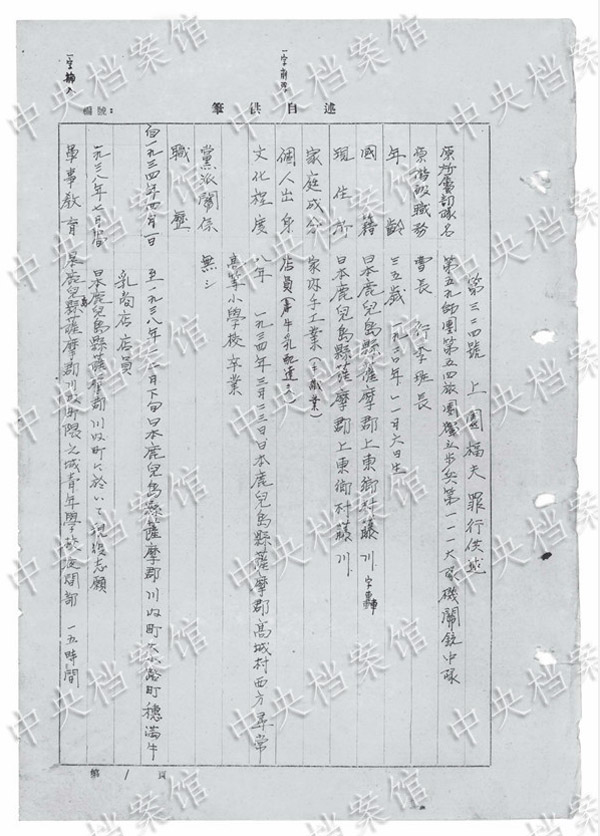 述自供筆
編號：
第三二四號 上園福夫 罪行供述
原所屬部隊名 第五九師團第五四旅團獨立步兵第一一一大隊機關銃中隊
原階級職務 曹長 行李班長
年齡 三五歲 一九二〇年一一月六日生
國籍 日本鹿兒島縣薩摩郡上東鄉村藤川
現住所 日本鹿兒島縣薩摩郡上東鄉村藤川
家庭成分 家內手工業
個人出身 店員
文化程度 八年 一九三四年三月二三日日本鹿兒島縣薩摩郡高城村西方尋常
高等小學校卒業
黨派關係 無シ
職歷
自一九三四年四月一日 至一九三八年一二月下旬日本鹿兒島縣薩摩郡川內町大小路町穗滿牛
乳商店店員
一九三八年七月 日本鹿兒島縣薩摩郡川內町ニ於いて現役志願
軍事教育 鹿兒島縣薩摩郡川內町隈之城青年學校 一五時間
第 1 頁
中央档案馆